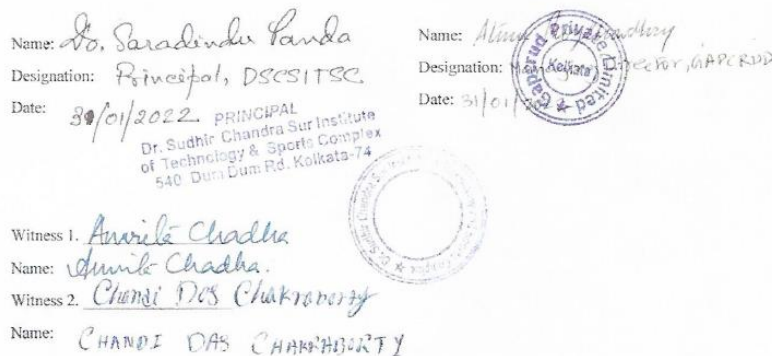 Name: Dr. Saradindu Panda
Designation: Principal, DSCSITSC.
Date: 31/01/2022
PRINCIPAL
Dr. Sudhir Chandra Sur Institute
of Technology & Sports Complex
540 Dum Dum Rd. Kolkata-74
Name:
Designation: Director, GAPCRUD
Date: 31/01/
Gapcrud Private Limited
Kolkata
Witness 1. Amrita Chadha
Name: Amrita Chadha.
Witness 2. Chandi Das Chakraborty
Name: CHANDI DAS CHAKRABORTY